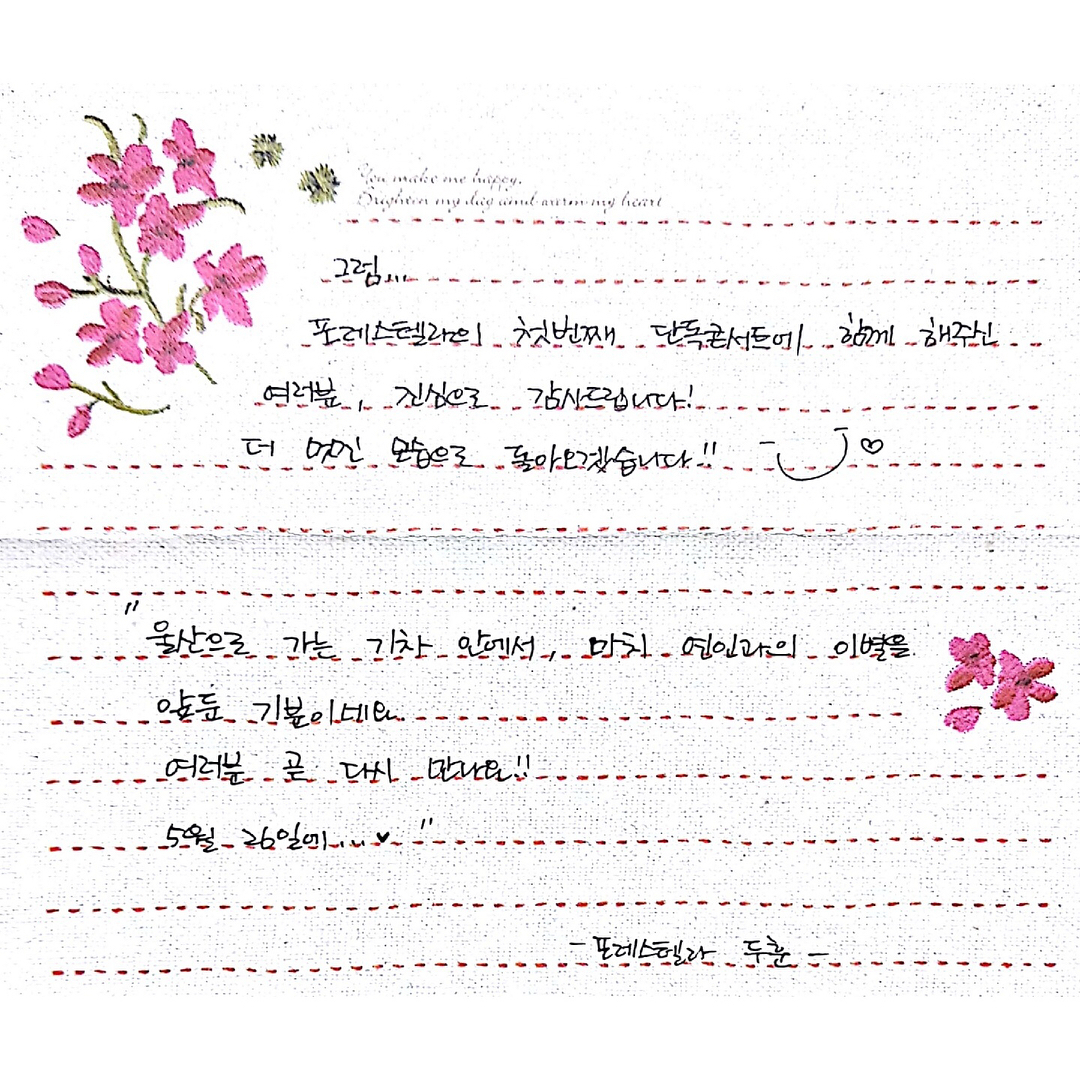 You make me happy.
Brighten my day and warm my heart
그럼...
포레스텔라의 첫번째 단독콘서트에 함께 해주신
여러분, 진심으로 감사드립니다!
더 멋진 모습으로 돌아오겠습니다!!
"울산으로 가는 기차 안에서, 마치 연인과의 이별을
앞둔 기분이네요.
여러분 곧 다시 만나요!!
5월 26일에...♥"
-포레스텔라 두훈-